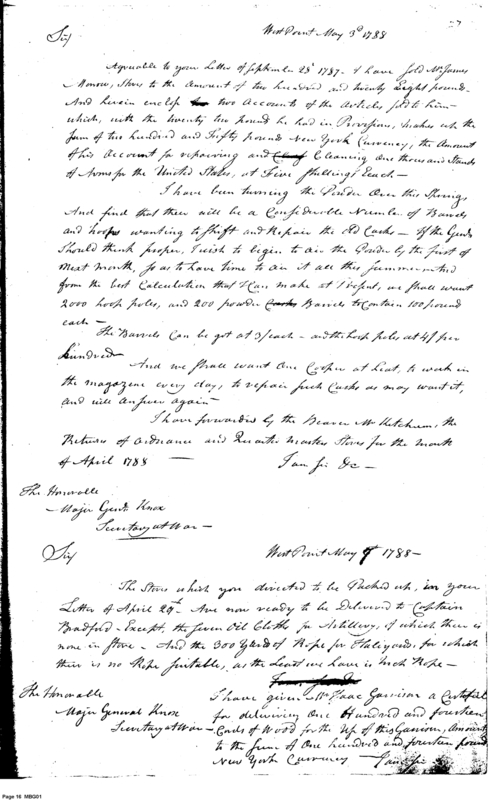 West Point May 3d 1788
Sir
Agreeable to your Letter of September 28th 1787 - I have Sold Mr James
Morrow, Stores to the Amount of two hundred and twenty Eight pounds.
And herein enclose two Accounts of the Articles sold to him -
which, with the twenty two Pound he had in Provision, makes up the
Sum of two hundred and Fifty pounds New York Currency, the Amount
of his Account for repairing and Cleaning One thousand Stands
of Arms for the United States, at Five Shillings Each -
I have been turning the Powder Over this Spring
And find that their will be a Considerable Number of Barrels
and hoops wanting to Shift and Repair the old Casks - If the Genl
Should think proper, I wish to begin to air the Powder by the first of
Next month, so as to have time to air it all this Summer
from the best Calculation that I can make at Present, we shall want
2000 hoop poles, and 200 powder Barrels to Contain 100 pound
each -
The Barrels Can be got at 3/ each - and the hoop poles at 4/ per
hundred
And we Shall want One Cooper at Least, to work in
the magazene every day, to repair such Casks as may want it,
and will answer again -
I have forwarded by the Bearer Mr Ketchum, the
Returns of Ordnance and Quarter Masters Stores for the Month
of April 1788 —
I am Sir &c —
The Honorable
Major Genl. Knox
Secretary at War —
Sir
West Point May 9th 1788 —
The Stores which you directed to be Packed up, in your
Letter of April 29th - Are now ready to be Delivered to Captain
Bradford - Except, the Seven Oil Cloths for Artillery, of which there is
none in Store - And the 300 Yards of Rope for Haleyards, for which
their is no Rope suitable, as the Least we have is Inch Rope —
I have given Mr Isaac Garrison a Certificate
for delivering One Hundred and fourteen
Cords of Wood for the Use of this Garrison, Amount
to the Sum of One hundred and fourteen pound
New York Currency - I am Sir
The Honorable
Major General Knox
Secretary at War —
Page 16 MBG01